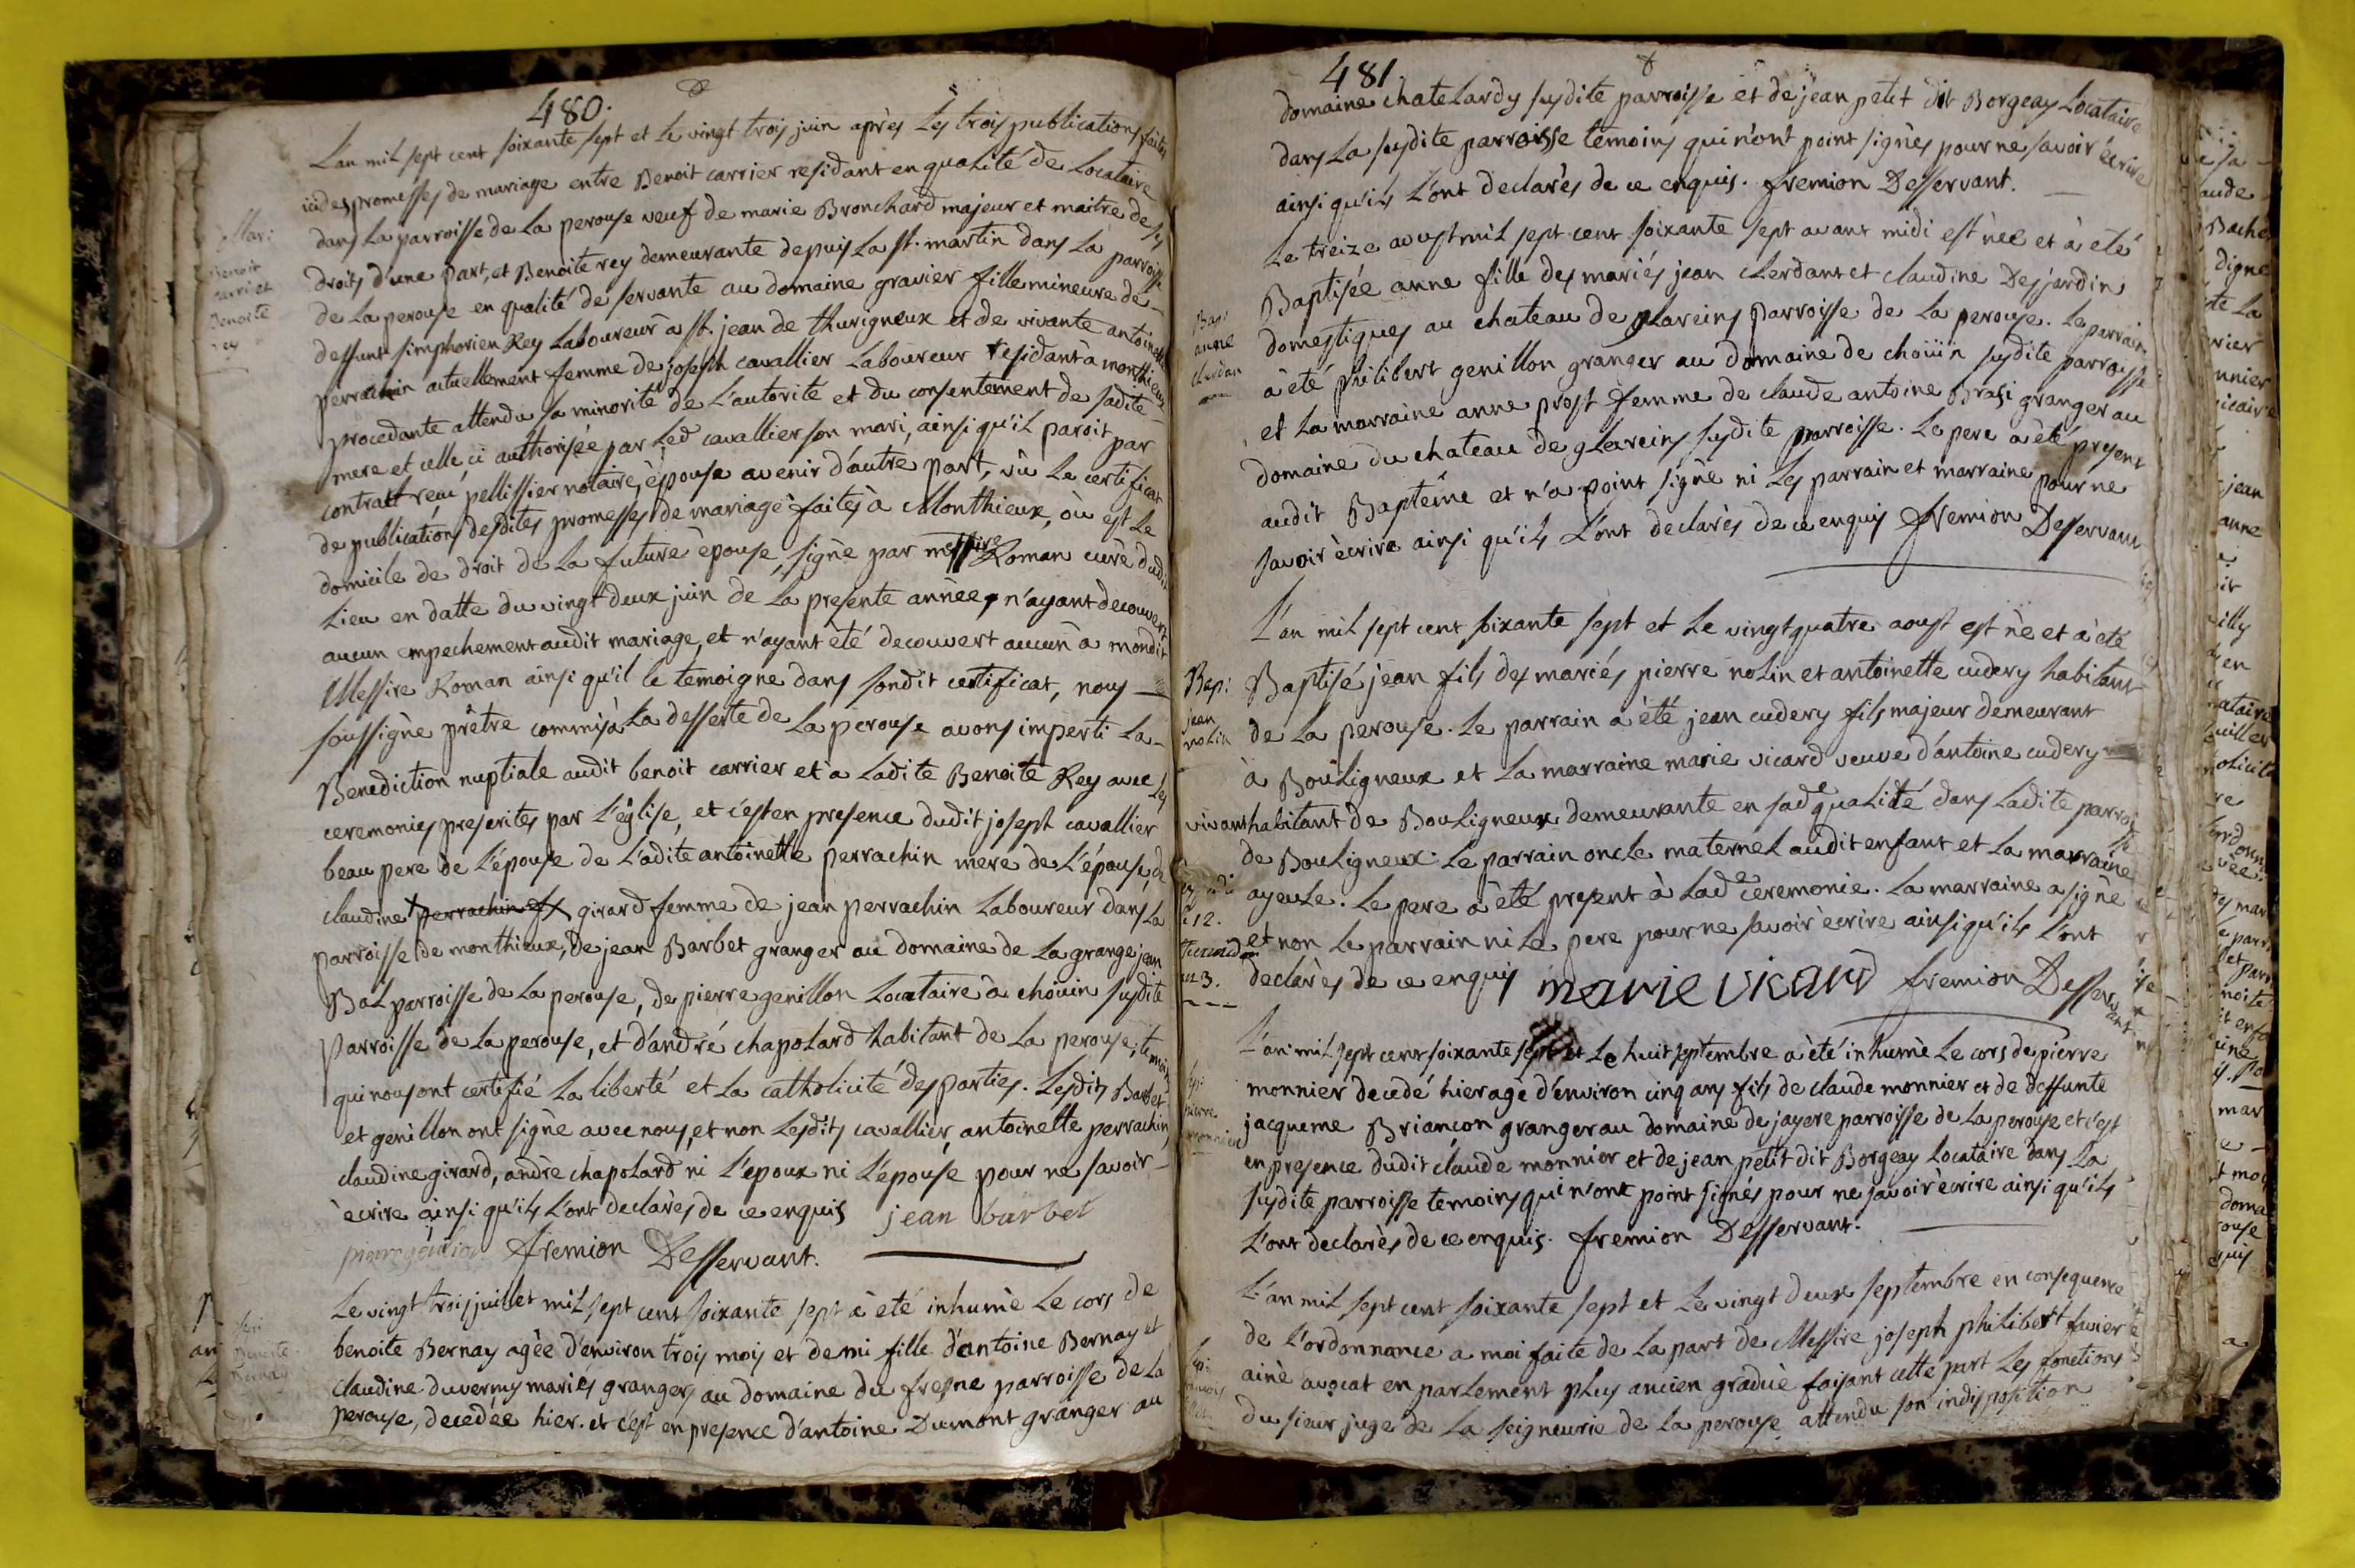 480.
L'an mil sept cent soixante sept et le vingt trois juin après les trois publications faites
ici des promesses de mariage entre Benoit carrier residant en qualité de Locataire
dans la parroisse de la perouse veuf de marie Bronchard majeur et maitre de ses
droits d'une part, et Benoite rey demeurante depuis la st. martin dans la parroisse
de la perouse en qualité de servante au domaine gravier fille mineure de
deffunt simphorien Rey Laboureur a st. jean de thurigneux et de vivante antoinette
perrachin actuellement femme de joseph cavallier Laboureur residant à monthieux
procedante attendu sa minorité de l'autorité et du consentement de sadite
mere et celle ci authorisée par led cavallier son mari, ainsi qu'il paroit par
contratt reçu pellissier notaire, èpouse avenir d'autre part, vû le certificat
de publications desdites promesses de mariage faites à Monthieux, où est le
domicile de droit de la future èpouse, signè par messire Roman curè dudit
Lieu en datte du vingt deux juin de la presente année, n'ayant decouvert
aucun empechement audit mariage, et n'ayant été decouvert aucun a mondit
Messire Roman ainsi qu'il le temoigne dans sondit certificat, nous
soussignè prêtre commis à la desserte de la perouse avons imperti la
Benediction nuptiale audit benoit carrier et a ladite Benoite Rey avec les
ceremonies prescrites par l'église, et c'est en presence dudit joseph cavallier
beau pere de l'épouse de l'adite antoinette perrachin mere de l'épouse, de
claudine perrachin et girard femme de jean perrachin Laboureur dans la
parroisse de monthieux, de jean Barbet granger au domaine de la grange jean
Bal parroisse de la perouse, de pierre genillon Locataire à choüin susdite
parroisse de la perouse, et d'andré chapolard habitant de la perouse, temoins
qui nous ont certifié la liberté et la catholicité des parties. Lesdits Barbet
et genillon ont signè avec nous, et non lesdits cavallier, antoinette perrachin,
claudine girard, andrè chapolard ni l'epoux ni l'epouse pour ne savoir
ècrire ainsi qu'ils l'ont declarès de ce enquis jean barbet
pierre genillon fremion Desservant.
Le vingt trois juillet mil sept cent soixante sept à eté inhumè le cors de
benoite Bernay agèe d'environ trois mois et demi fille d'antoine Bernay et
claudine duverny mariés grangers au domaine du fresne parroisse de la
perouse, decedée hier. et c'est en presence d'antoine Dumont granger au
Mari:
Benoit
carri et
Benoite
rey
Benoite
Bernay
481
domaine chatelardy susdite parroisse et de jean petit dit Borgeay Locataire
dans la susdite parroisse temoins qui n'ont point signès pour ne savoir ècrire
ainsi qu'ils l'ont declarès de ce enquis. fremion Desservant.
Le treize aoust mil sept cent soixante sept avant midi est nèe et à eté
Baptisée anne fille des mariés jean cherdant et claudine Desjardin
domestiques au chateau de glareins parroisse de la perouse. le parrain
à été philibert genillon granger au domaine de choüin susdite parroisse
et la marraine anne prost femme de claude antoine Brasi granger au
domaine du chateau de glareins susdite parroisse. Le pere a été present
audit Baptême et n'a point signè ni les parrain et marraine pour ne
savoir ècrire ainsi qu'ils l'ont declarès de ce enquis fremion Desservant
Bap:
anne
L'an mil sept cent soixante sept et le vingt quatre aoust est nè et à eté
Baptisé jean fils des mariés pierre nolin et antoinette cudery habitant
de la perouse. Le parrain a été jean cudery fils majeur demeurant
à Bouligneux et la marraine marie vicard veuve d'antoine cudery
vivant habitant de Bouligneux demeurante en sade qualité dans ladite parroisse
de Bouligneux. Le parrain oncle maternel audit enfant et la marraine
ayeule. Le pere a été present à lade ceremonie. La marraine a signè
et non le parrain ni le pere pour ne savoir ècrire ainsi qu'ils l'ont
declarès de ce enquis marie vicard fremion Desservant
Bap:
jean
nolin
L'an mil sept cent soixante sept et le huit septembre a été inhumè le cors de pierre
monnier decedé hier agè d'environ cinq ans fils de claude monnier et de deffunte
jacqueme Briancon granger au domaine de jayere parroisse de la perouse et c'est
en presence dudit claude monnier et de jean petit dit Borgeay Locataire dans la
susdite parroisse temoins qui n'ont point signés pour ne savoir ècrire ainsi qu'ils
l'ont declarès de ce enquis. fremion Desservant.
pierre
monnier
L'an mil sept cent soixante sept et le vingt deux septembre en consequence
de l'ordonnance a moi faite de la part de Messire joseph philibert
ainè avocat en parlement plus ancien graduè faisant cette part les fonctions
du sieur juge de la seigneurie de la perouse attendu son indisposition